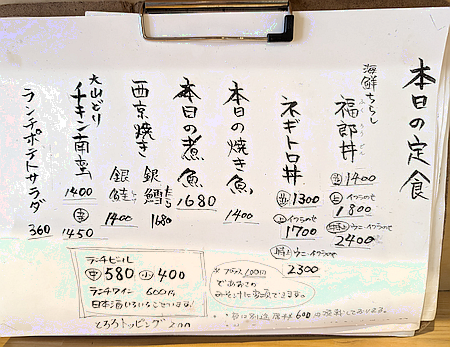 本日の定食
海鮮ちらし
福郎丼
並 1400
上 イクラのせ
1800
特上 ウニ・イクラのせ
2400
ネギトロ丼
並 1300
上 イクラのせ
1700
特上 ウニ・イクラのせ
2300
本日の焼き魚
1400
本日の煮魚
1680
西京焼き
銀鱈
1680
銀鮭
1400
大山どり
チキン南蛮
1400
1450
ランチポテトサラダ
360
ランチビール
中 580 小 400
ランチワイン 600円
日本酒いろいろございます!
とろろトッピング
※ プラス100円
であおさの
みそ汁に変更できます。